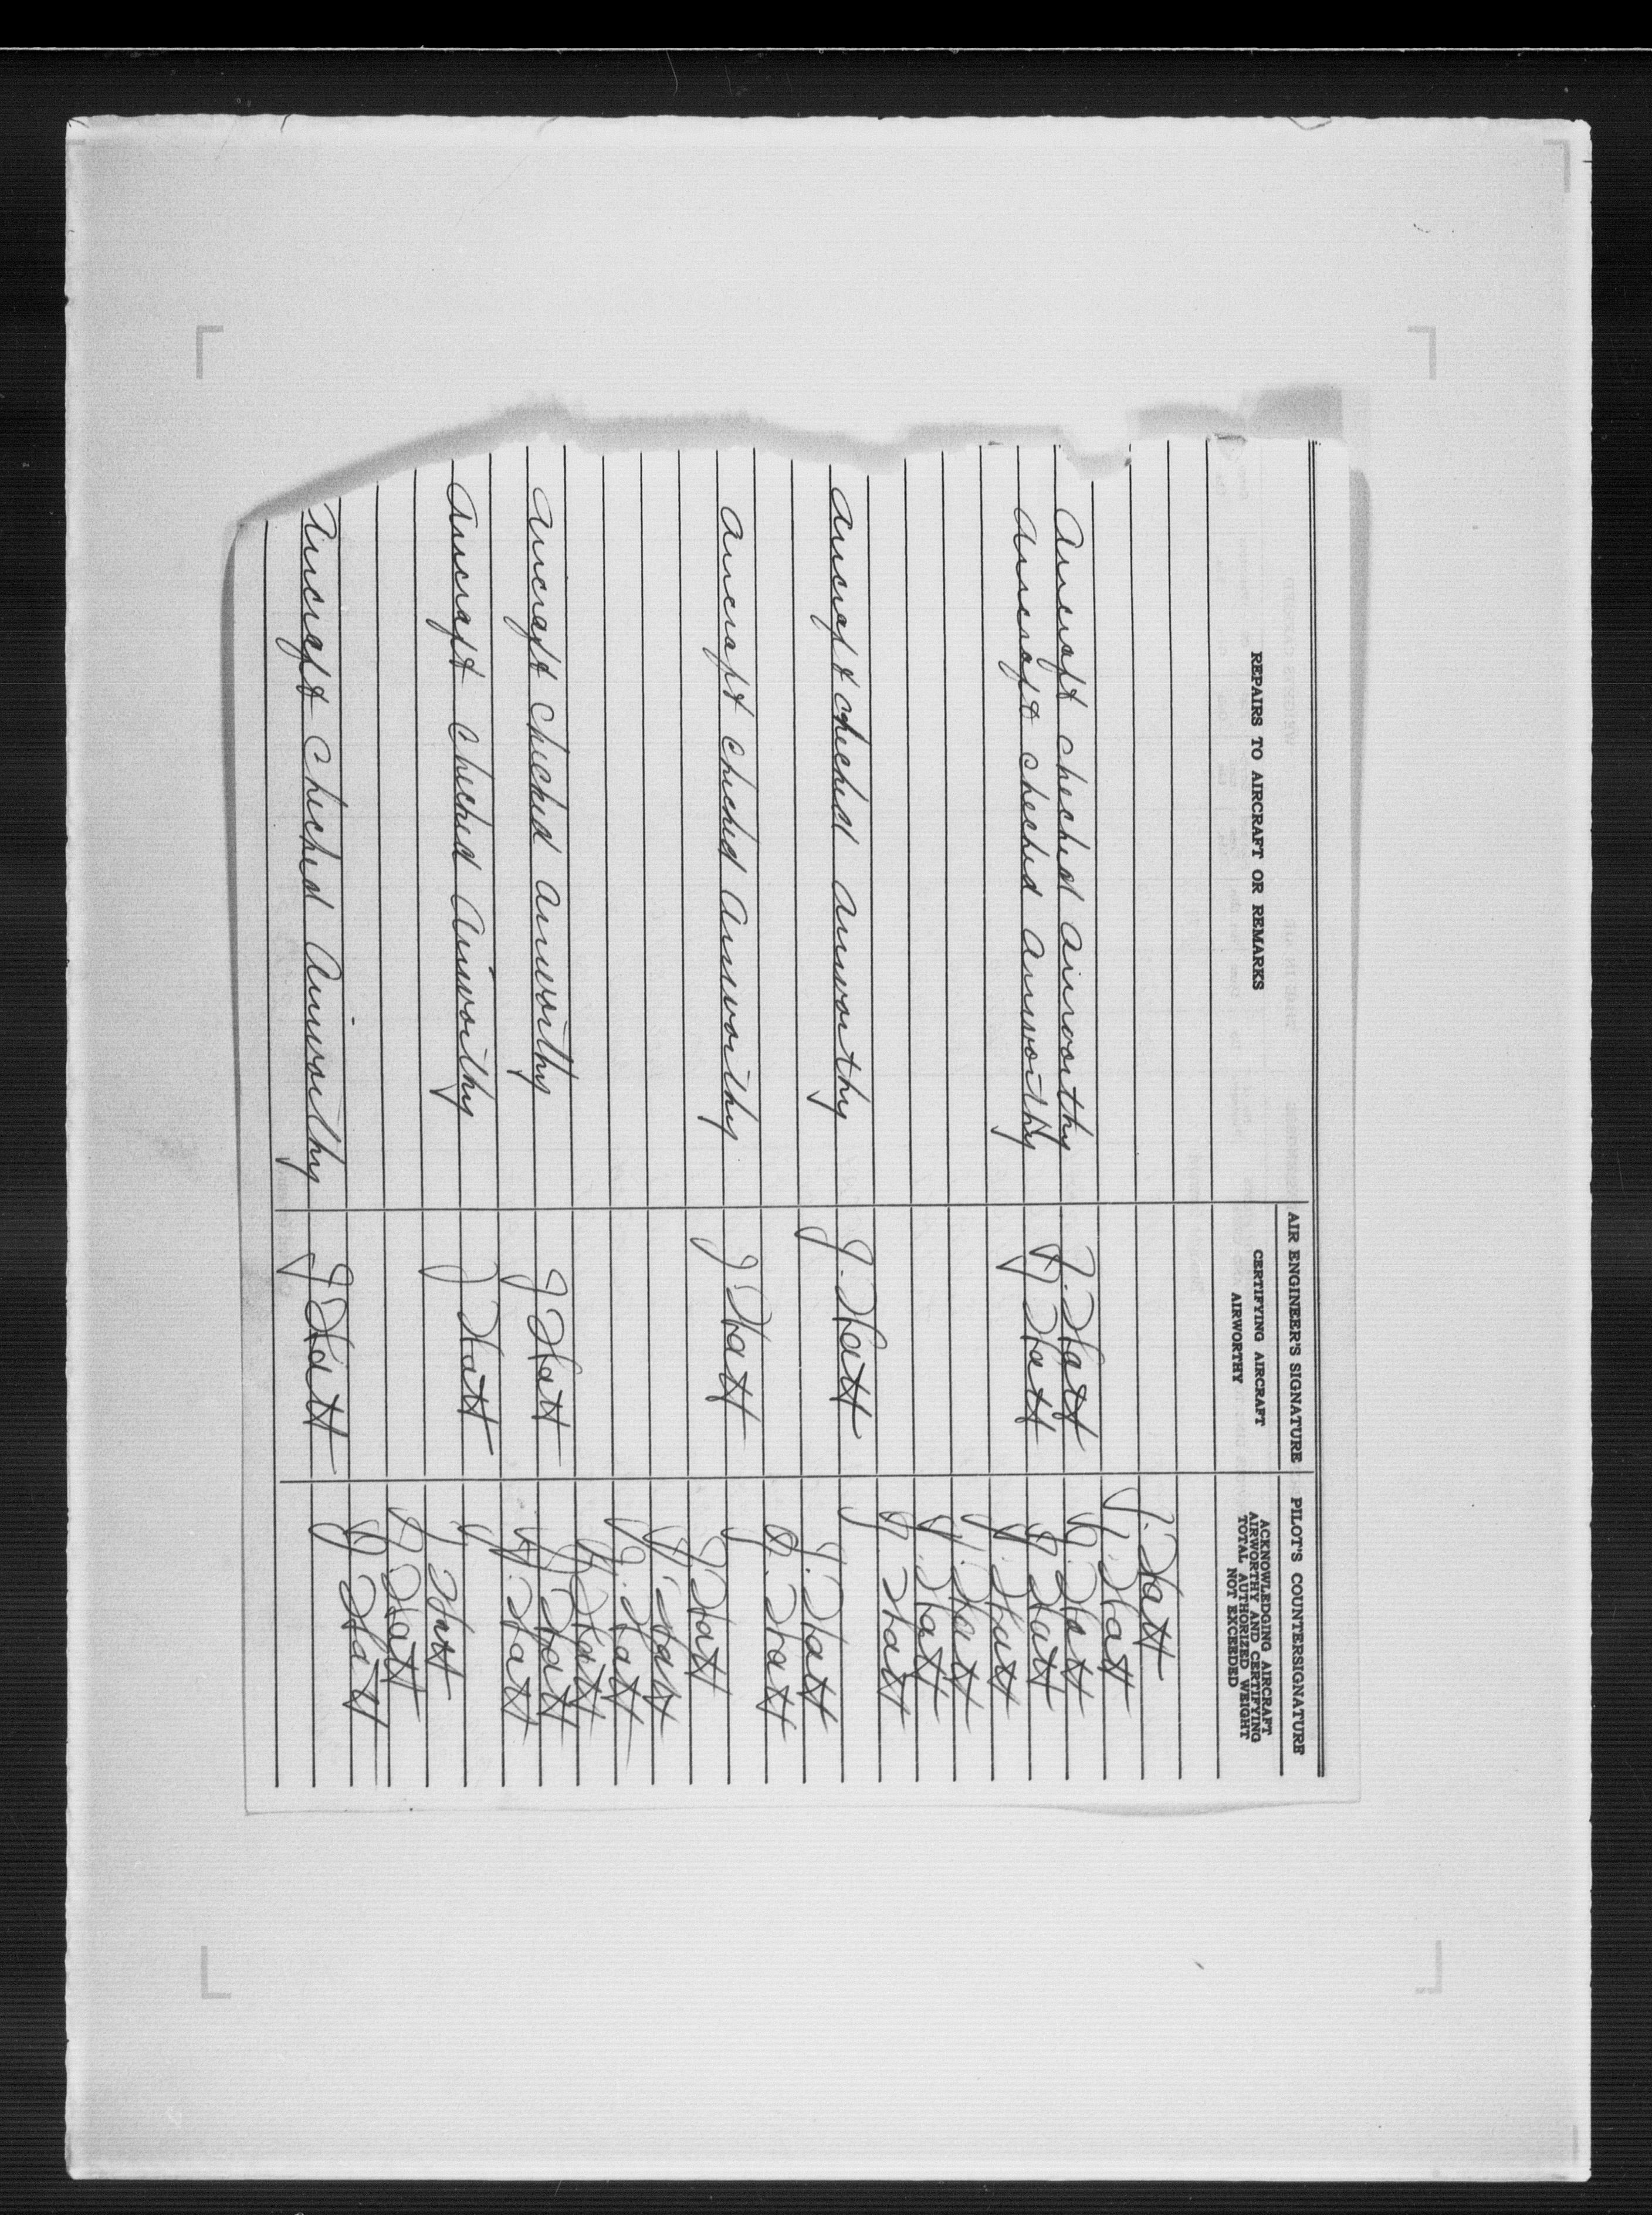 REPAIRS TO AIRCRAFT OR REMARKS
AIR ENGINEER'S SIGNATURE
CERTIFYING AIRCRAFT
AIRWORTHY
PILOT'S COUNTERSIGNATURE
ACKNOWLEDGING AIRCRAFT
AIRWORTHY AND CERTIFYING
TOTAL AUTHORIZED WEIGHT
NOT EXCEEDED
J. Hatt
J. Hatt
Aircraft checked airworthy J. Hatt J. Hatt
Aircraft checked airworthy J Hatt J. Hatt
J. Hatt
J. Hatt
J. Hatt
J. Hatt
Aircraft checked airworthy J. Hatt
J. Hatt
J. Hatt
Aircraft checked airworthy J Hatt
J Hatt
J. Hatt
J. Hatt
J. Hatt
Aircraft checked airworthy J Hatt J. Hatt
J. Hatt
Aircraft checked Airworthy J Hatt
J Hatt
J Hatt
J. Hatt
Aircraft Checked Airworthy J Hatt